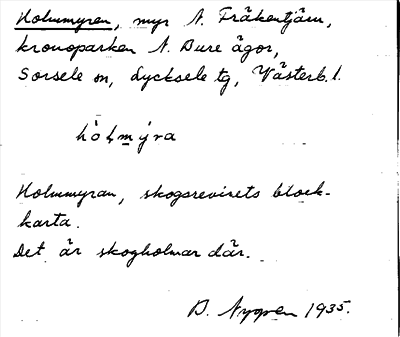 Holmmyren, myr N. Fräkentjärn,
kronoparken N. Bure ägor,
Sorsele sn, Lycksele tg, Västerb. l.
hòlmýra
Holmmyran, skogsrevirets block-
karta.
Det är skogholmar där.
D. Nygren 1935.